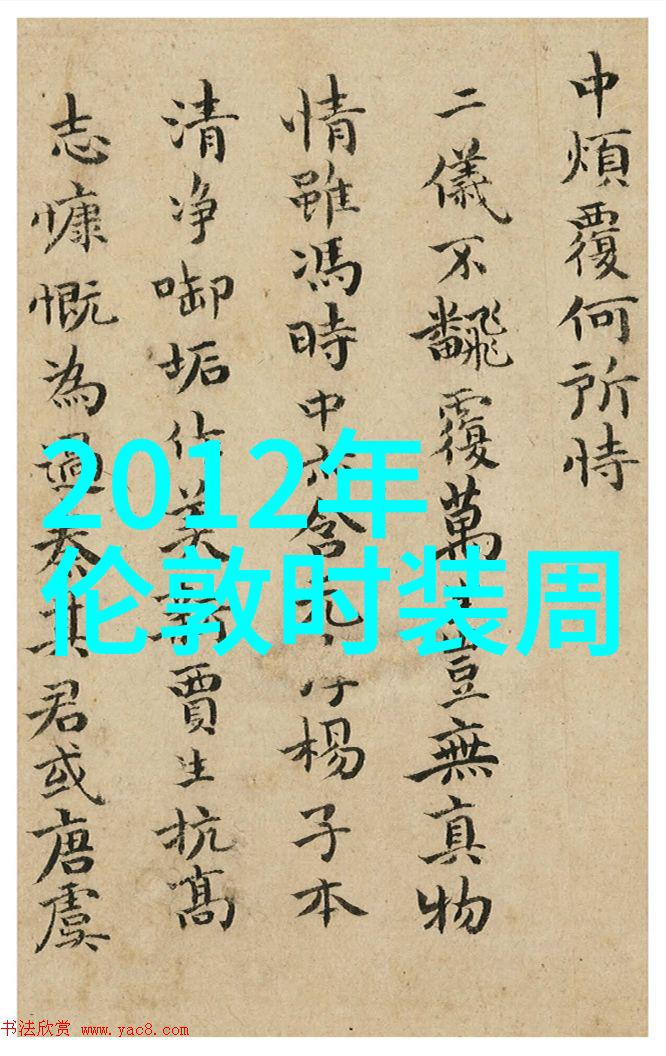 中煩覆何所恃
二儀不飜覆萬豈無真物
情雖馮時中亦含楊子本
清净啣垢作美新賈生抗高
志慷慨為過秦其君或唐虞
2012年
伦敦时装周
书法欣赏 www.yac8.com